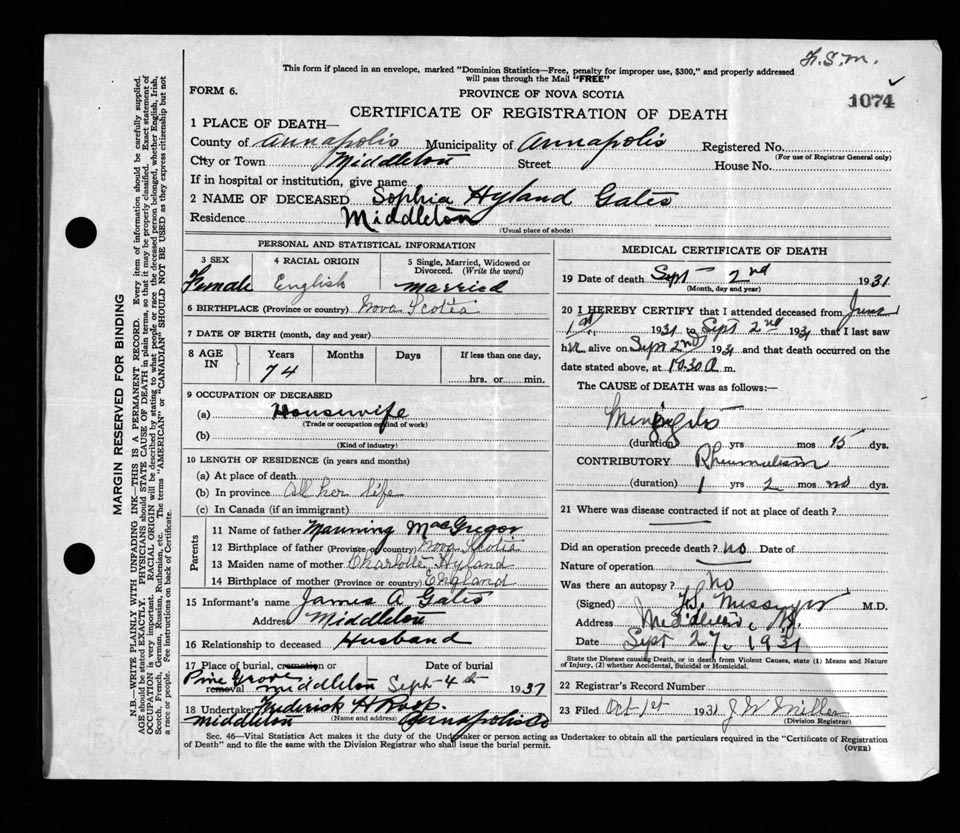 F.S.M.
This form if placed in an envelope, marked "Dominion Statistics—Free, penalty for improper use, $300," and properly addressed
will pass through the Mail "FREE"
1074
FORM 6.
PROVINCE OF NOVA SCOTIA
CERTIFICATE OF REGISTRATION OF DEATH
1 PLACE OF DEATH—
County of Annapolis Municipality of Annapolis Registered No.
(For use of Registrar General only)
City or Town Middleton Street House No.
If in hospital or institution, give name
2 NAME OF DECEASED Sophia Hyland Gates
Residence Middleton
(Usual place of abode)
PERSONAL AND STATISTICAL INFORMATION
3 SEX Female
4 RACIAL ORIGIN English
5 Single, Married, Widowed or
Divorced. (Write the word)
married
6 BIRTHPLACE (Province or country) Nova Scotia
7 DATE OF BIRTH (month, day and year)
8 AGE IN Years 74 Months Days If less than one day,
hrs. or min.
9 OCCUPATION OF DECEASED
(a) Housewife
(Trade or occupation or kind of work)
(b)
(Kind of industry)
10 LENGTH OF RESIDENCE (in years and months)
(a) At place of death
(b) In province All her life
(c) In Canada (if an immigrant)
Parents
11 Name of father Manning MacGregor
12 Birthplace of father (Province or country) Nova Scotia
13 Maiden name of mother Charlotte Hyland
14 Birthplace of mother (Province or country) England
15 Informant's name James A Gates
Address Middleton
16 Relationship to deceased Husband
17 Place of burial, cremation or
removal Pine Grove Middleton
Date of burial
Sept 4th 1931
18 Undertaker Frederick H Roop.
Middleton (Name and address) Annapolis Co
MEDICAL CERTIFICATE OF DEATH
19 Date of death Sept 2nd 1931
(Month, day and year)
20 I HEREBY CERTIFY that I attended deceased from June
1st 1931 to Sept 2nd 1931 that I last saw
her alive on Sept 2nd 1931 and that death occurred on the
date stated above, at 10.30 a m.
The CAUSE of DEATH was as follows:—
Meningitis
(duration) yrs mos 15 dys.
CONTRIBUTORY Rheumatism
(duration) 1 yrs 2 mos no dys.
21 Where was disease contracted if not at place of death?
Did an operation precede death? no Date of
Nature of operation
Was there an autopsy? No
(Signed) Messenger M.D.
Address Middleton N.S.
Date Sept 27, 1931
State the Disease causing Death, or in death from Violent Causes, state (1) Means and Nature
of Injury, (2) whether Accidental, Suicidal or Homicidal.
22 Registrar's Record Number
23 Filed Oct 1st 1931 J W Miller
(Division Registrar)
Sec. 46—Vital Statistics Act makes it the duty of the Undertaker or person acting as Undertaker to obtain all the particulars required in the "Certificate of Registration
of Death" and to file the same with the Division Registrar who shall issue the burial permit.
(OVER)
MARGIN RESERVED FOR BINDING
N.B.—WRITE PLAINLY WITH UNFADING INK—THIS IS A PERMANENT RECORD. Every item of information should be carefully supplied.
AGE should be stated EXACTLY. PHYSICIANS should STATE CAUSE OF DEATH in plain terms, so that it may be properly classified. Exact statement of
OCCUPATION is very important. RACIAL ORIGIN will be described by stating to what people or race the deceased person belonged, whether English, Irish,
Scotch, French, German, Russian, Ruthenian, etc. The terms "AMERICAN" or "CANADIAN" SHOULD NOT BE USED as they express citizenship but not
a race or people. See instructions on back of Certificate.